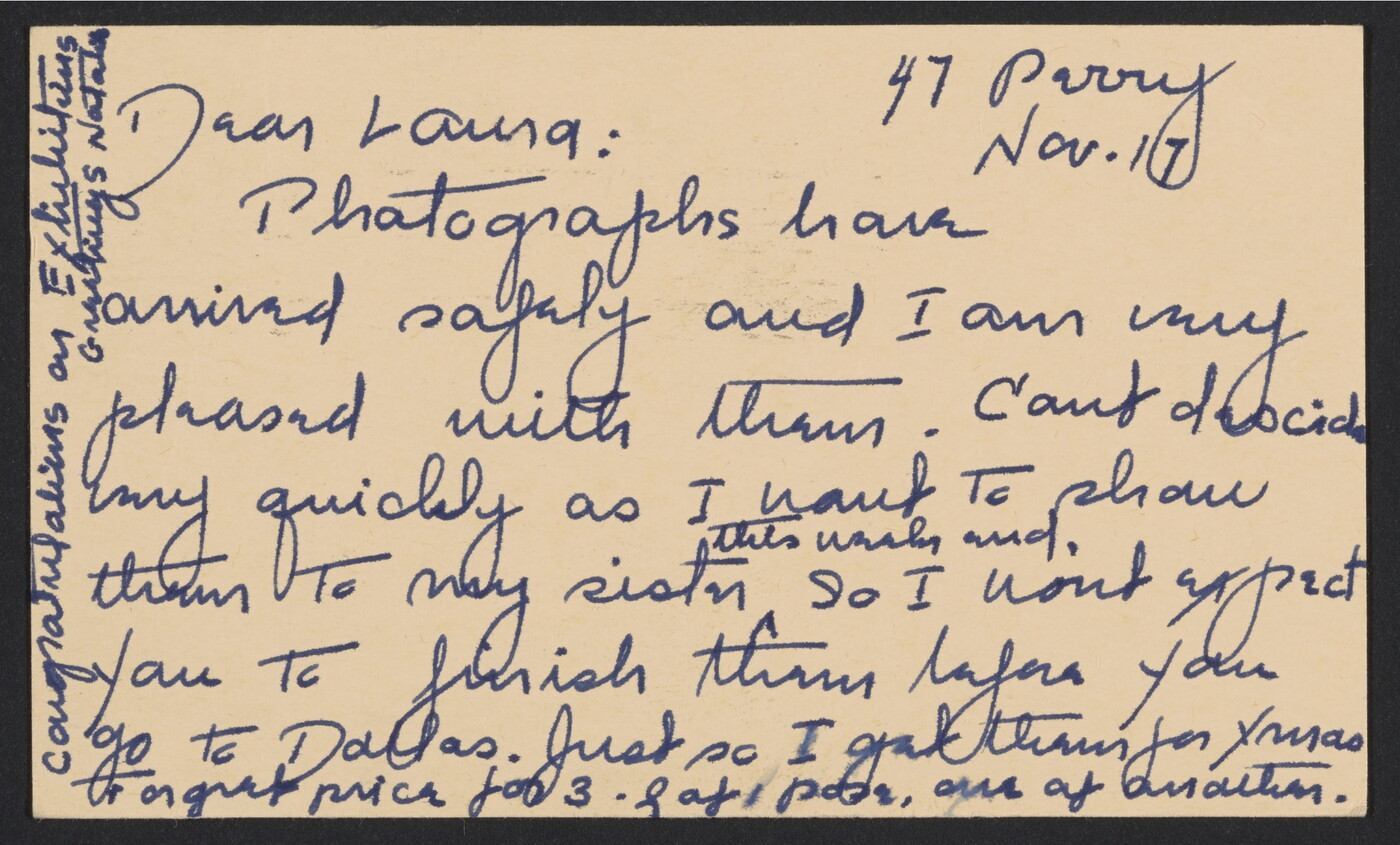 47 Perry
Nov. 17
Dear Laura:
Photographs have
arrived safely and I am very
pleased with them. Cant decide
very quickly as I want to show
this week end.
them to my sister ^ So I wont expect
you to finish them before you
go to Dallas. Just so I get them for Xmas
Forget price for 3 - 2 of 1 pose, one of another.
Congratulations on Exhibitions
Greetings Natalie